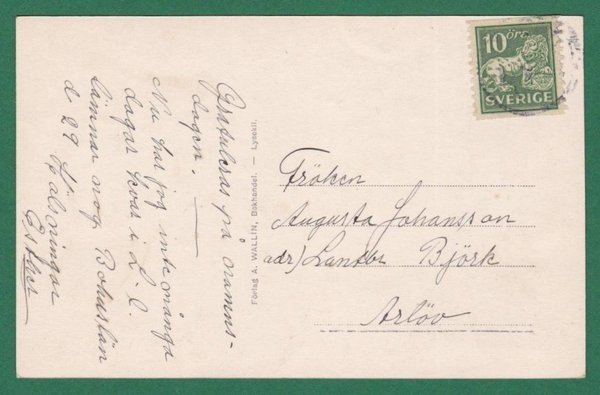 Gratuleras på namns-
dagen.
Nu har jag inte många
dagar kvar i L-l.
lämnar nog Bohuslän
d 29 Hälsningar
Esther
Förlag A. WALLIN, Bokhandel. — Lysekil.
10 ÖRE
SVERIGE
Fröken
Augusta Johansson
adr) Lantbr Björk
Arlöv